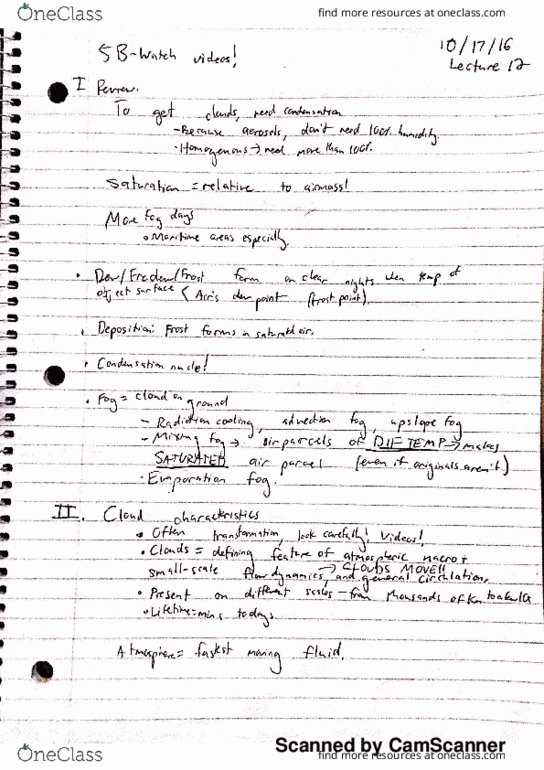 OneClass
find more resources at oneclass.com
5B-Watch videos!
10/17/16
Lecture 12
I Review.
To get clouds, need condensation
-Because aerosols, don't need 100% humidity.
·Homogenous → need more than 100%.
Saturation = relative to airmass!
More fog days
Maritime areas especially.
· Dew/Frozen/Frost form on clear nights when temp of
object surface < Air's dew point (frost point).
· Deposition: Frost forms in saturated air.
· Condensation nuclei!
· Fog = cloud on ground
- Radiation cooling, advection fog, upslope fog
- Mixing fog → air parcels of DIF TEMP → makes
SATURATED air parcel (even if originals aren't)
· Evaporation fog.
II. Cloud characteristics
· Often transformation, look carefully! Videos!
· Clouds = defining feature of atmospheric macro +
→ CLOUDS MOVE!!
small-scale flow dynamics, and general circulation.
· Present on different scales - from thousands of km to
· Lifetime = mins to days
Atmosphere = fastest moving fluid.
Scanned by CamScanner
OneClass
find more resources at oneclass.com